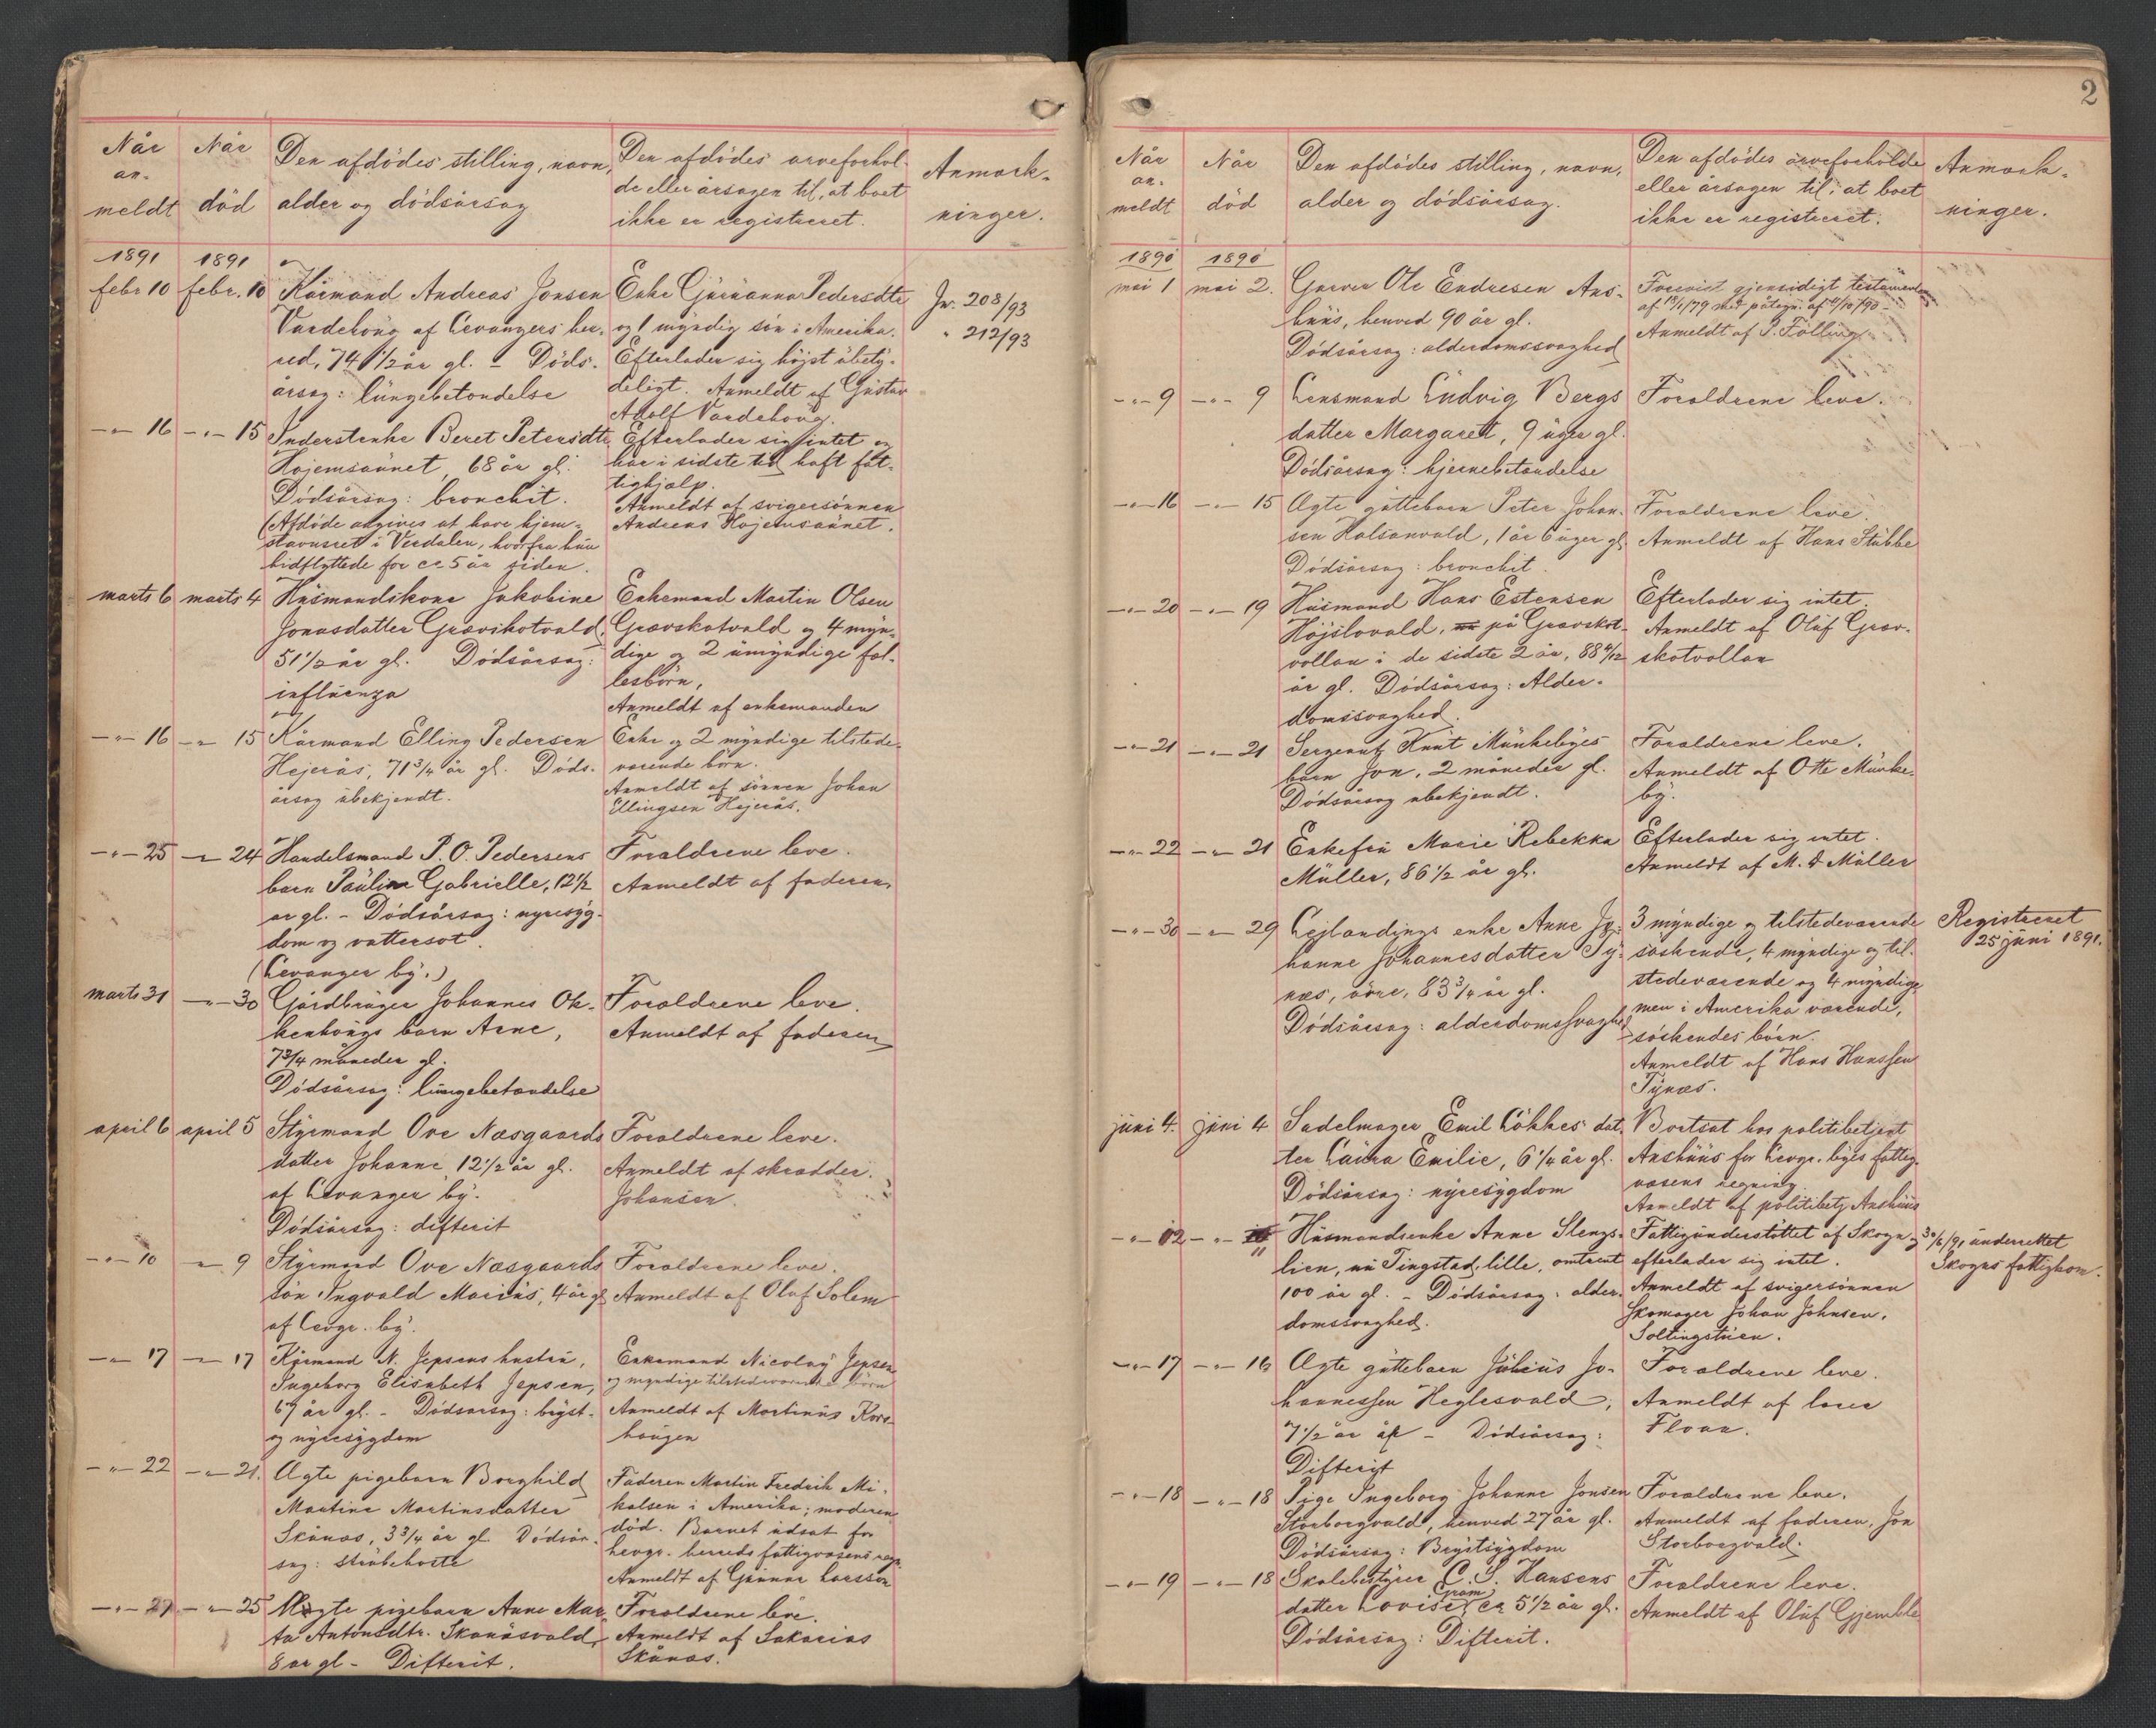 Når
an-
meldt
Når
död
Den afdödes stilling, navn,
alder og dödsårsag
Den afdödes arveforhol-
de eller årsagen til, at boet
ikke er registreret.
Anmærk-
ninger.
1891
1891
febr 10
febr. 10
Kårmand Andreas Jonsen
Vardehoug af Levangers her-
red, 74 1/2 år gl. - Döds-
årsag: lungebetændelse
Enke Gurianna Pedersdtr
og 1 myndig sön i Amerika.
Efterlader sig höjst ubety-
deligt. Anmeldt af Gustav
Adolf Vardehoug.
Jr. 208/93
" 212/93
-"- 16
-"- 15
Inderstenke Beret Petersdtr
Hojemsaunet, 68 år gl.
Dödsårsag: bronchit.
(Afdöde angives at have hjem-
stavnsret i Verdalen, hvorfra hun
hidflyttede for ca 5 år siden.
Efterlader sig intet og
har i sidste tid haft fat-
tighjælp.
Anmeldt af svigersönnen
Andreas Hojemsaunet.
marts 6
marts 4
Husmandskone Jakobine
Jonasdatter Gravskotvald,
51 1/2 år gl. Dödsårsag:
influenza
Enkemand Martin Olsen
Gravskotvald og 4 myn-
dige og 2 umyndige fæl-
lesbörn,
Anmeldt af enkemanden
-"- 16
-"- 15
Kårmand Elling Pedersen
Hejerås, 71 3/4 år gl. Döds-
årsag ubekjendt.
Enke og 2 myndige tilstede-
værende börn.
Anmeldt af sönnen Johan
Ellingsen Hejerås.
-"- 25
-"- 24
Handelsmand P. O. Pedersens
barn Pauline Gabrielle, 12 1/2
år gl. - Dödsårsag: nyresyg-
dom og vattersot.
(Levanger by.)
Forældrene leve.
Anmeldt af faderen
marts 31
-"- 30
Gårdbruger Johannes Ok-
kenhaugs barn Arne,
7 3/4 måneder gl.
Dödsårsag: lungebetændelse
Forældrene leve.
Anmeldt af faderen
april 6
april 5
Styrmand Ove Næsgaards
datter Johanne, 12 1/2 år gl.
af Levanger by.
Dödsårsag: difterit
Forældrene leve.
Anmeldt af skrædder
Johansen
-"- 10
-"- 9
Styrmand Ove Næsgaards
sön Ingvald Marius, 4 år gl
af Levgr. by.
Forældrene leve.
Anmeldt af Olaf Solem
-"- 17
-"- 17
Kjörmand N. Jepsens hustru,
Ingeborg Elisabeth Jepsen,
67 år gl. - Dödsårsag: bryst-
og nyresygdom
Enkemand Nicolay Jepsen
og myndige tilstedeværende börn
Anmeldt af Martinus Kors-
haugen
-"- 22
-"- 21.
Ægte pigebarn Borghild
Martine Martinsdatter
Skånes, 3 3/4 år gl. Dödsår-
sag: strubehoste
Faderen Martin Fredrik Mi-
kalsen i Amerika; moderen
död. Barnet udsat for
Levgr. herreds fattigvæsens regn.
Anmeldt af Gunnar Larssen
-"- 27
-"- 25
Ægte pigebarn Anne Mar-
ta Antonsdtr. Skånesvald,
8 år gl - Difterit.
Forældrene leve.
Anmeldt af Sakarias
Skånes.
2
Når
an-
meldt
Når
död
Den afdödes stilling, navn,
alder og dödsårsag.
Den afdödes arveforholde
eller årsagen til, at boet
ikke er registreret.
Anmærk-
ninger.
1890
1890
mai 1
mai 2.
Garver Ole Endresen Aus-
huus, henved 90 år gl.
Dödsårsag: alderdomssvaghed
Forevist gjensidigt testamente
af 18/1/79 med påtegn. af
Anmeldt af P. Fölling.
-"- 9
-"- 9
Lensmand Ludvig Bergs
datter Margarett, 9 uger gl.
Dödsårsag: hjernebetændelse
Forældrene leve.
-"- 16
-"- 15
Ægte guttebarn Peter Johan-
sen Halsanvald, 1 år 6 uger gl
Dödsårsag: bronchit.
Forældrene leve.
Anmeldt af Hans Stubbe
-"- 20
-"- 19
Husmand Hans Estensen
Höjslovald, på Gravskot-
vollan i de sidste 2 år, 88 4/12
år gl. Dödsårsag: Alder-
domssvaghed.
Efterlader sig intet.
Anmeldt af Oluf Grav-
skotvollan
-"- 21
-"- 21
Sergeant Knut Munkebyes
barn Jon, 2 måneder gl.
Dödsårsag ubekjendt.
Forældrene leve.
Anmeldt af Otte Munke-
by.
-"- 22
-"- 21
Enkefru Marie Rebekka
Müller, 86 1/2 år gl.
Efterlader sig intet.
Anmeldt af M. Müller
-"- 30
-"- 29
Lejlændings enke Anne Jo-
hanne Johannesdatter Ty-
næs, övre, 83 3/4 år gl.
Dödsårsag: alderdomssvaghed
3 myndige og tilstedeværende
söskende, 4 myndige og til-
stedeværende og 4 myndige
men i Amerika værende,
söskendes börn.
Anmeldt af Hans Hanssen
Tynæs.
Registreret
25 juni 1891.
juni 4.
juni 4
Sadelmager Emil Lökkes dat-
ter Laura Emilie, 6 1/4 år gl.
Dödsårsag: nyresygdom
Bortsat hos politibetjent
Aushuus for Levgr. byes fattig-
væsens regning.
Anmeldt af politibetj Aushuus
-"- 12
-"- 11
Husmandsenke Anne Slengs-
lien, nu Tingstad, lille, omtrent
100 år gl. - Dödsårsag: alder-
domssvaghed.
Fattigunderstöttet af Skogn og
efterlader sig intet.
Anmeldt af svigersönnen
Skomager Johan Johnsen,
Soltingstuen.
30/6/91 underrettet
Skogns fattigkom.
-"- 17
-"- 16
Ægte guttebarn Julius Jo-
hannessen Heglesvald,
7 1/2 år - Dödsårsag:
Difterit
Forældrene leve.
Anmeldt af lærer
Floan.
-"- 18
-"- 18
Pige Ingeborg Johanne Jonsen
Storborgvald, henved 27 år gl.
Dödsårsag: Brystsygdom
Forældrene leve.
Anmeldt af faderen, Jon
Storborgvald.
-"- 19
-"- 18
Skolebestyrer C. S. Hansens
datter Lovise Gram ca 5 1/2 år gl.
Dödsårsag: Difterit.
Forældrene leve.
Anmeldt af Oluf Gjemble